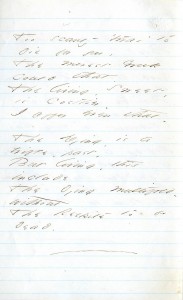 Too scanty 'twas to
die for you,
The merest Greek
could that.
The living, Sweet,
is costlier -
I offer even that -
The Dying, is a
trifle, past,
But living, this
include
The dying multifold,
without
The Respite to be
dead.